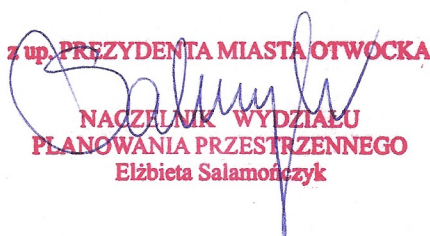 z up. PREZYDENTA MIASTA OTWOCKA
NACZELNIK WYDZIAŁU
PLANOWANIA PRZESTRZENNEGO
Elżbieta Salamończyk